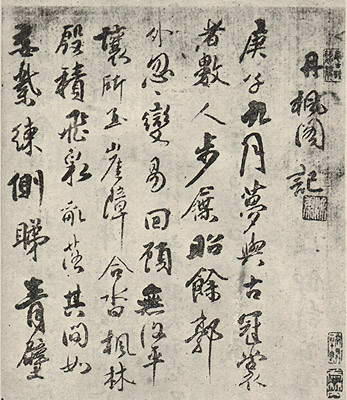 丹楓閣記
庚子九月夢與古冠裳
者數人步屧昭餘郭
外忽忽變易回顧無復平
壤立崖障合沓楓林
殷積飛彩落其間如
縈練側睇青壁